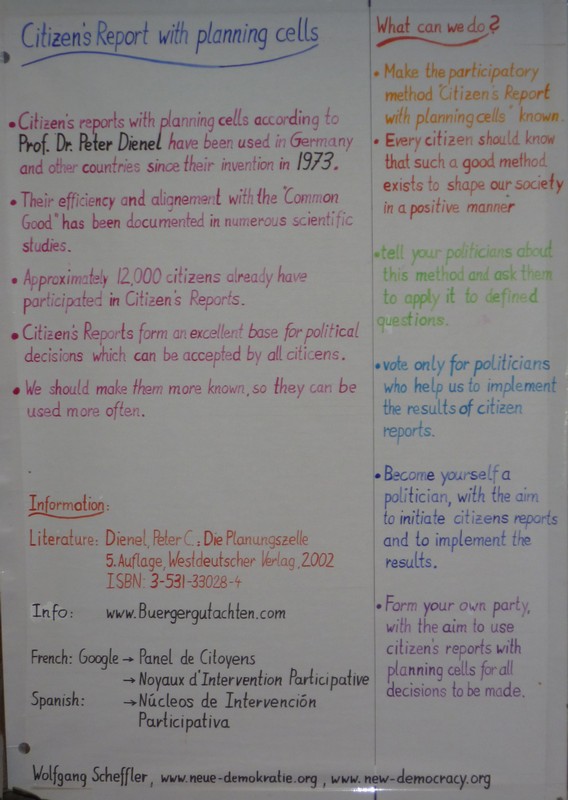 Citizen's Report with planning cells
• Citizen's reports with planning cells according to
Prof. Dr. Peter Dienel have been used in Germany
and other countries since their invention in 1973.
• Their efficiency and alignement with the "Common
Good" has been documented in numerous scientific
studies.
• Approximately 12,000 citizens already have
participated in Citizen's Reports.
• Citizen's Reports form an excellent base for political
decisions which can be accepted by all citicens.
• We should make them more known, so they can be
used more often.
Information:
Literature: Dienel, Peter C.: Die Planungszelle
5. Auflage, Westdeutscher Verlag, 2002
ISBN: 3-531-33028-4
Info: www.Buergergutachten.com
French: Google → Panel de Citoyens
→ Noyaux d'Intervention Participative
Spanish: → Núcleos de Intervención
Participativa
What can we do?
• Make the participatory
method "Citizen's Report
with planning cells" known.
• Every citizen should know
that such a good method
exists to shape our society
in a positive manner
• tell your politicians about
this method and ask them
to apply it to defined
questions.
• vote only for politicians
who help us to implement
the results of citizen
reports.
• Become yourself a
politician, with the aim
to initiate citizens reports
and to implement the
results.
• Form your own party,
with the aim to use
citizen's reports with
planning cells for all
decisions to be made.
Wolfgang Scheffler, www.neue-demokratie.org, www.new-democracy.org